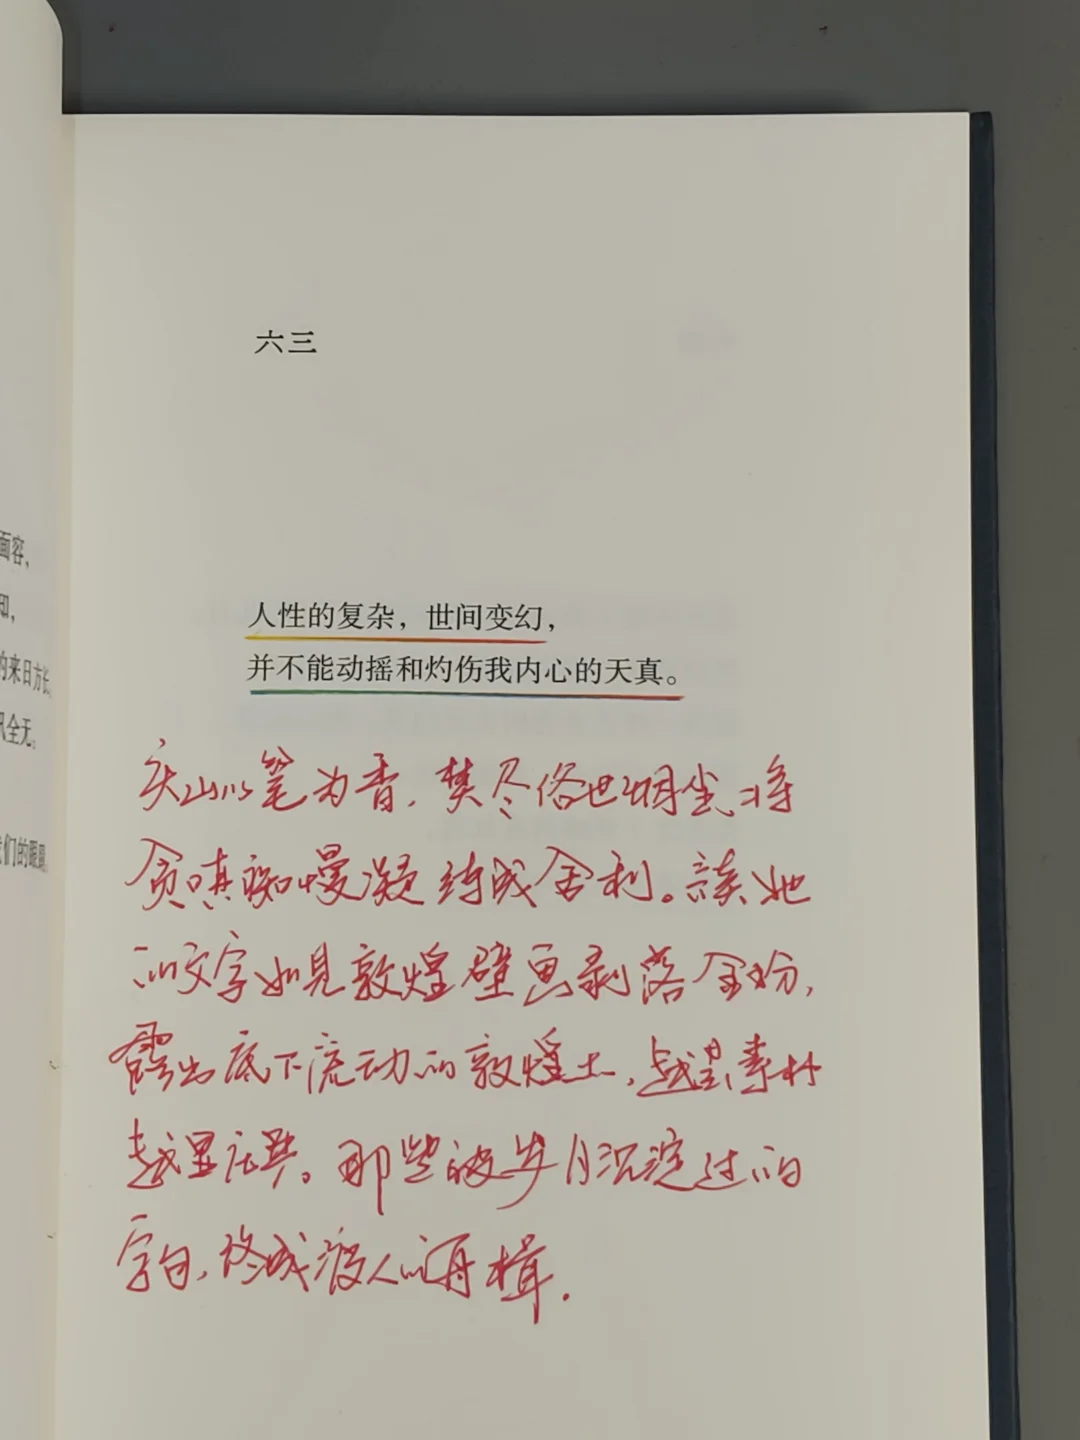 面容，
知，
的来日方长，
讯全无。
我们的眼
六三
人性的复杂，世间变幻，
并不能动摇和灼伤我内心的天真。
庆山以笔为香，焚尽俗世烟尘，将
贪嗔痴慢凝结成舍利。读她
的文字如见敦煌壁画剥落金粉，
露出底下流动的敦煌土，越是素朴
越显庄严。那些被岁月沉淀过的
字句，终成渡人的舟楫.